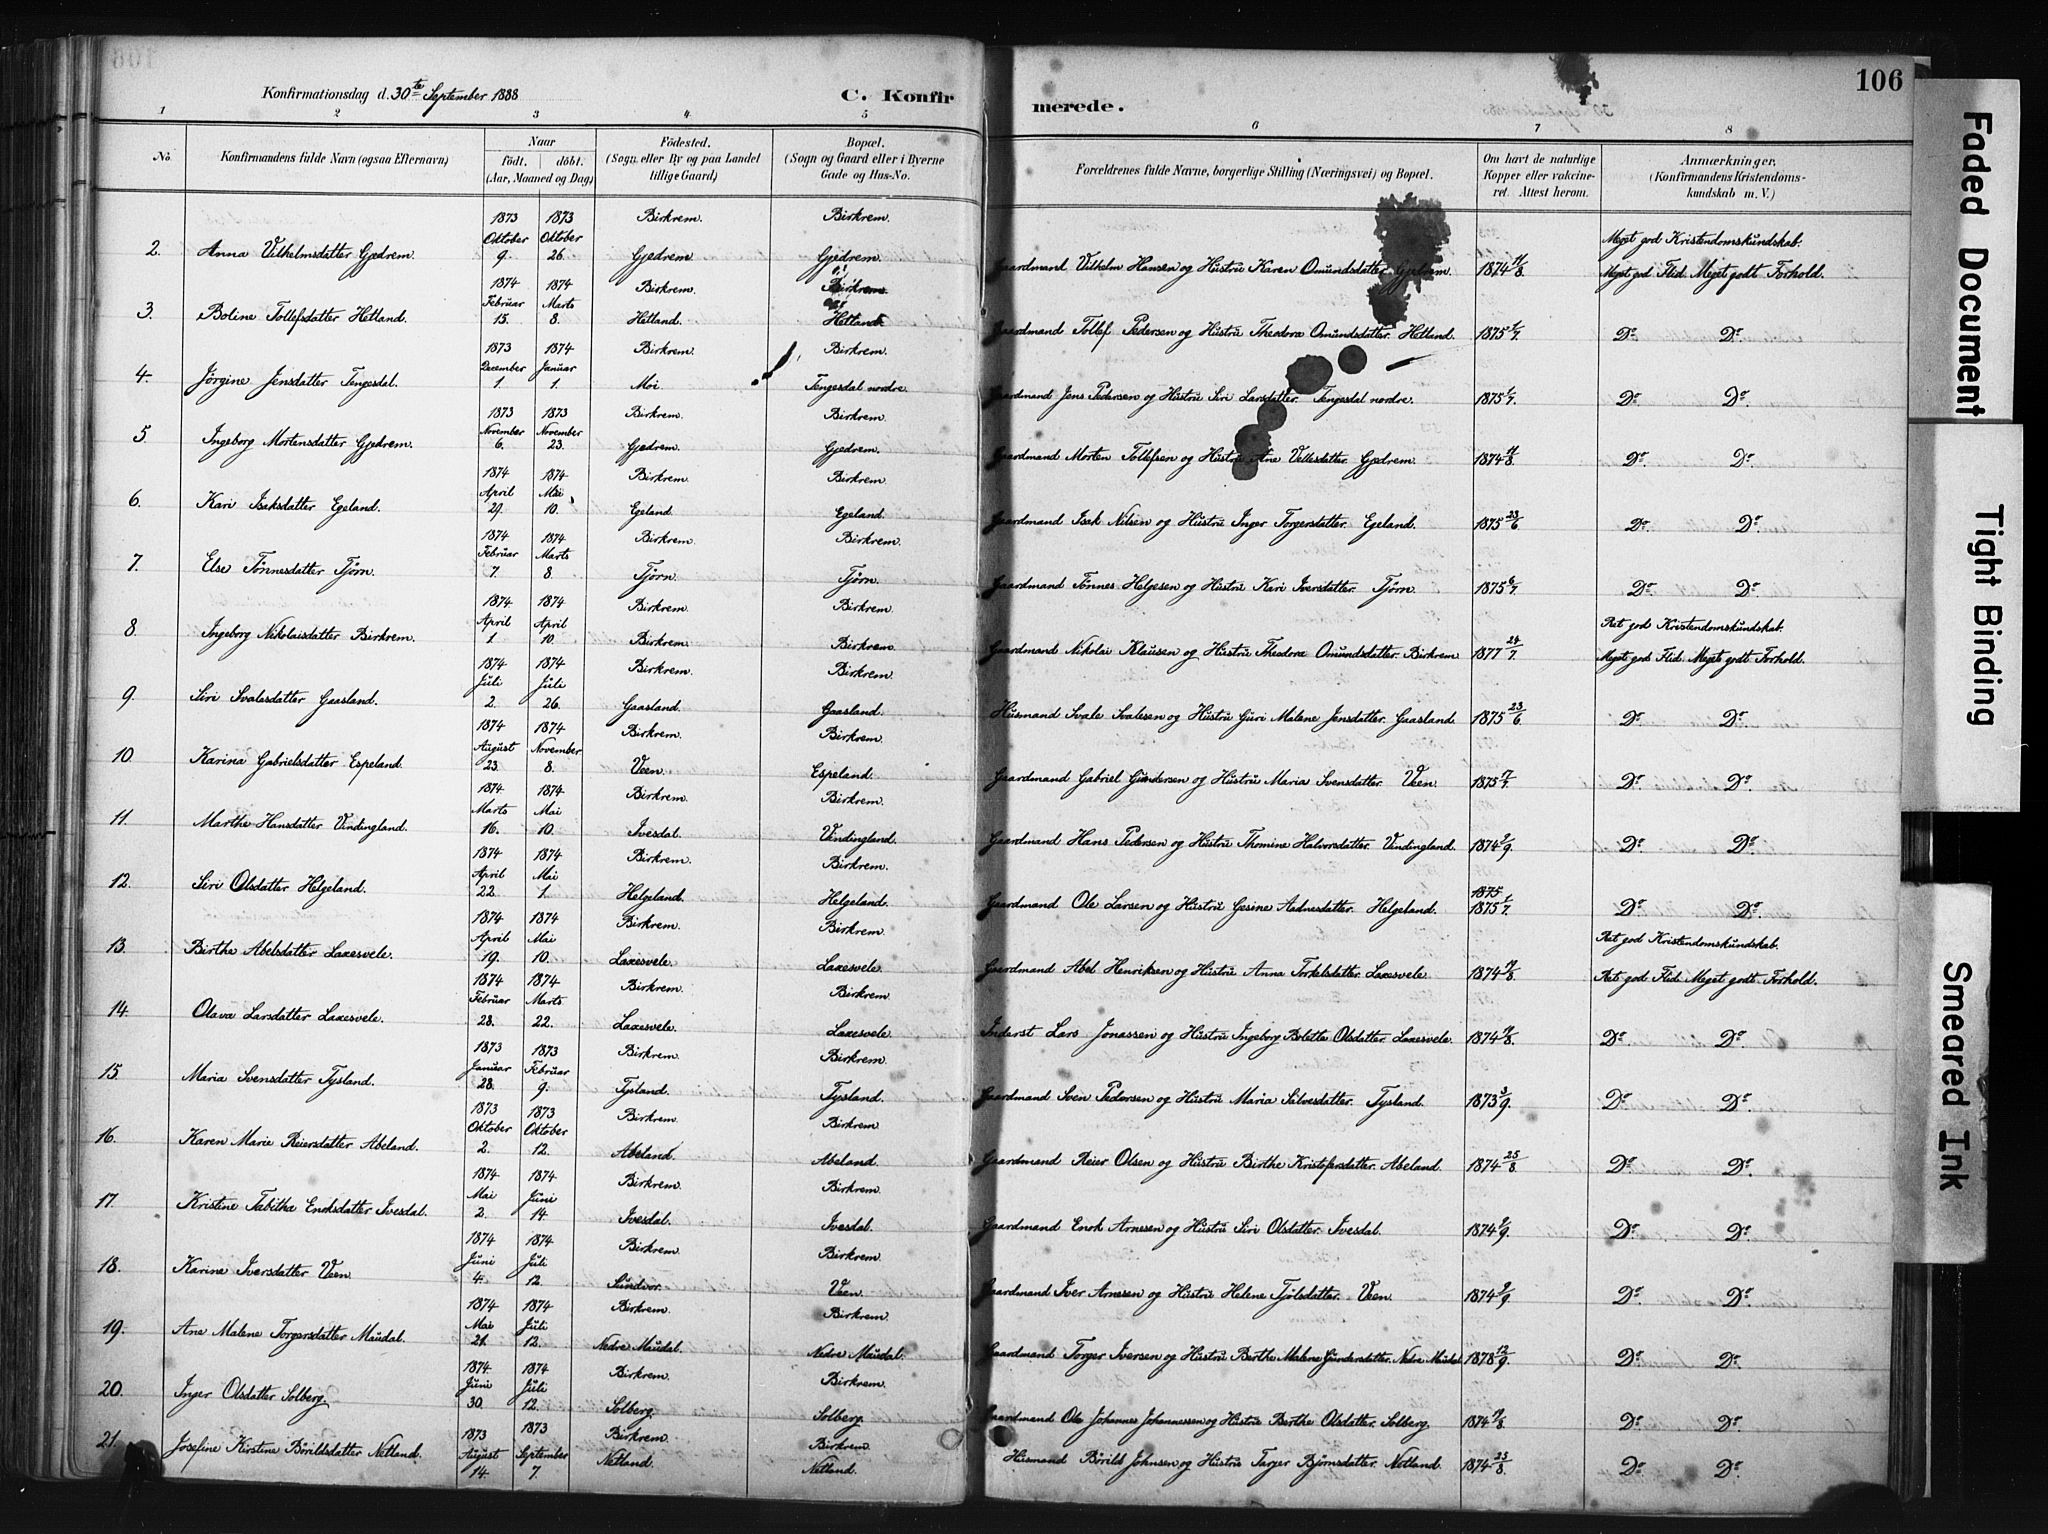 106
Konfirmationsdag d. 30te September 1888
C. Konfir merede.
1 2 3 4 5 6 7 8
No. Konfirmandens fulde Navn (ogsaa Efternavn) Naar födt. döbt. (Aar, Maaned og Dag) Födested. (Sogn eller By og paa Landet tillige Gaard) Bopæl. (Sogn og Gaard eller i Byerne Gade og Hus-No. Forældrenes fulde Navne, borgerlige Stilling (Næringsvei) og Bopæl. Om havt de naturlige Kopper eller vakcineret. Attest herom. Anmærkninger, (Konfirmandens Kristendomskundskab m. V.)
2. Anna Vilhelmsdatter Gjedrem. 1873 Oktober 9. 1873 Oktober 26. Birkrem. Gjedrem. Birkrem. Gjedrem. Gaardmand Vilhelm Hansen og Hustru Karen Omundsdatter Gjedrem. 1874 11/8. Meget god Kristendomskundskab. Meget god Flid. Meget godt Forhold.
3. Boline Tollefsdatter Hetland. 1874 Februar 15. 1874 Marts 8. Birkrem. Hetland. Birkrem. Hetland. Gaardmand Tollef Pedersen og Hustru Theodora Omundsdatter. Hetland. 1875 1/7. Do. Do.
4. Jørgine Jensdatter Tengesdal. 1873 December 1. 1874 Januar 1. Birkrem. Moi Birkrem. Tengesdal nordre. Gaardmand Jens Pedersen og Hustru Siri Larsdatter. Tengesdal nordre. 1875 1/7. Do. Do.
5. Ingeborg Mortensdatter Gjedrem. 1873 November 6. 1873 November 23. Birkrem. Gjedrem. Birkrem. Gjedrem. Gaardmand Morten Tollefsen og Hustru Ane Vellesdatter Gjedrem. 1874 11/8. Do. Do.
6. Kari Isaksdatter Egeland. 1874 April 29. 1874 Mai 10. Birkrem. Egeland. Birkrem. Egeland. Gaardmand Isak Nilsen og Hustru Inger Torgersdatter. Egeland. 1875 23/6 Do. Do.
7. Else Tønnesdatter Tjørn. 1874 Februar 7. 1874 Marts 8. Birkrem. Tjørn. Birkrem. Tjørn. Gaardmand Tønnes Helgesen og Hustru Kari Iversdatter. Tjørn. 1875 6/7. Do. Do.
8. Ingeborg Nikolaisdatter Birkrem. 1874 April 1. 1874 April 10. Birkrem. Birkrem. Birkrem. Birkrem. Gaardmand Nikolai Klausen og Hustru Theodora Omundsdatter. Birkrem 1877 24/7. Ret god Kristendomskundskab. Meget god Flid. Meget godt Forhold.
9. Siri Svalesdatter Gaasland. 1874 Juli 2. 1874 Juli 26. Birkrem. Gaasland. Birkrem. Gaasland. Husmand Svale Svalesen og Hustru Guri Malene Jensdatter. Gaasland. 1875 23/6 Do. Do.
10. Karina Gabrielsdatter Espeland. 1874 August 23. 1874 November 8. Birkrem. Veen. Birkrem. Espeland. Gaardmand Gabriel Gundersen og Hustru Maria Svensdatter. Veen. 1875 17/7. Do. Do.
11. Marthe Hansdatter Vindingland. 1874 Marts 16. 1874 Mai 10. Birkrem. Ivesdal. Birkrem. Vindingland. Gaardmand Hans Pedersen og Hustru Thomine Halvorsdatter. Vindingland. 1874 2/9. Do. Do.
12. Siri Olsdatter Helgeland. 1874 April 22. 1874 Mai 1. Birkrem. Helgeland. Birkrem. Helgeland. Gaardmand Ole Larsen og Hustru Gesine Aadnesdatter. Helgeland. 1875 1875 1/7. Do. Do.
13. Birthe Abelsdatter Laxesvele. 1874 April 19. 1874 Mai 10. Birkrem. Laxesvele. Birkrem. Laxesvele. Gaardmand Abel Henriksen og Hustru Anna Torkelsdatter. Laxesvele. 1874 17/8 Ret god Kristendomskundskab. Ret god Flid. Meget godt Forhold.
14. Olava Larsdatter Laxesvele. 1874 Februar 28. 1874 Marts 22. Birkrem. Laxesvele. Birkrem. Laxesvele. Inderst Lars Jonassen og Hustru Ingeborg Bolette Olsdatter. Laxesvele. 1874 17/8. Do. Do.
15. Maria Svensdatter Tysland. 1873 Januar 28. 1873 Februar 9. Birkrem. Tysland. Birkrem. Tysland. Gaardmand Sven Pedersen og Hustru Maria Salvesdatter. Tysland. 1873 3/9. Do. Do.
16. Karen Marie Reiersdatter Abeland. 1873 Oktober 2. 1873 Oktober 12. Birkrem. Abeland. Birkrem. Abeland. Gaardmand Reier Olsen og Hustru Birthe Kristofersdatter. Abeland. 1874 25/8. Do. Do.
17. Kristine Tabitha Enoksdatter Ivesdal. 1874 Mai 2. 1874 Juni 14. Birkrem. Ivesdal. Birkrem. Ivesdal. Gaardmand Enok Arnesen og Hustru Siri Olsdatter. Ivesdal. 1874 2/9. Do. Do.
18. Karine Iversdatter Veen. 1874 Juni 4. 1874 Juli 12. Birkrem. Sundvor. Birkrem. Veen. Gaardmand Iver Arnesen og Hustru Helene Tjølsdatter. Veen. 1874 9/9. Do. Do.
19. Ane Malene Torgersdatter Maudal. 1874 Mai 21. 1874 Juli 12. Birkrem. Nedre Maudal. Birkrem. Nedre Maudal. Gaardmand Torger Iversen og Hustru Berthe Malene Gundersdatter. Nedre Maudal. 1878 12/9. Do. Do.
20. Inger Olsdatter Solberg. 1874 Juni 30. 1874 Juli 12. Birkrem. Solberg. Birkrem. Solberg. Gaardmand Ole Johannes Johannessen og Hustru Berthe Olsdatter. Solberg. 1874 17/8. Do. Do.
21. Josefine Kirstine Børildsdatter Netland. 1873 August 14. 1873 September 7. Birkrem. Netland. Birkrem. Netland. Husmand Børild Johnsen og Hustru Tarjer Bjørnsdatter. Netland. 1874 25/8. Do. Do.
Faded Document
Tight Binding
Smeared Ink